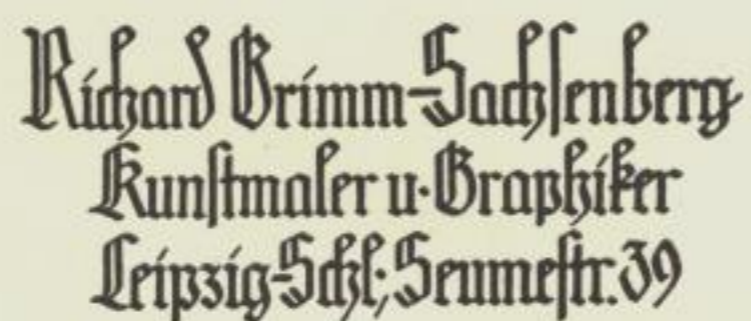 Richard Grimm-Sachsenberg
Kunstmaler u. Graphiker
Leipzig-Schl; Seumestr. 39